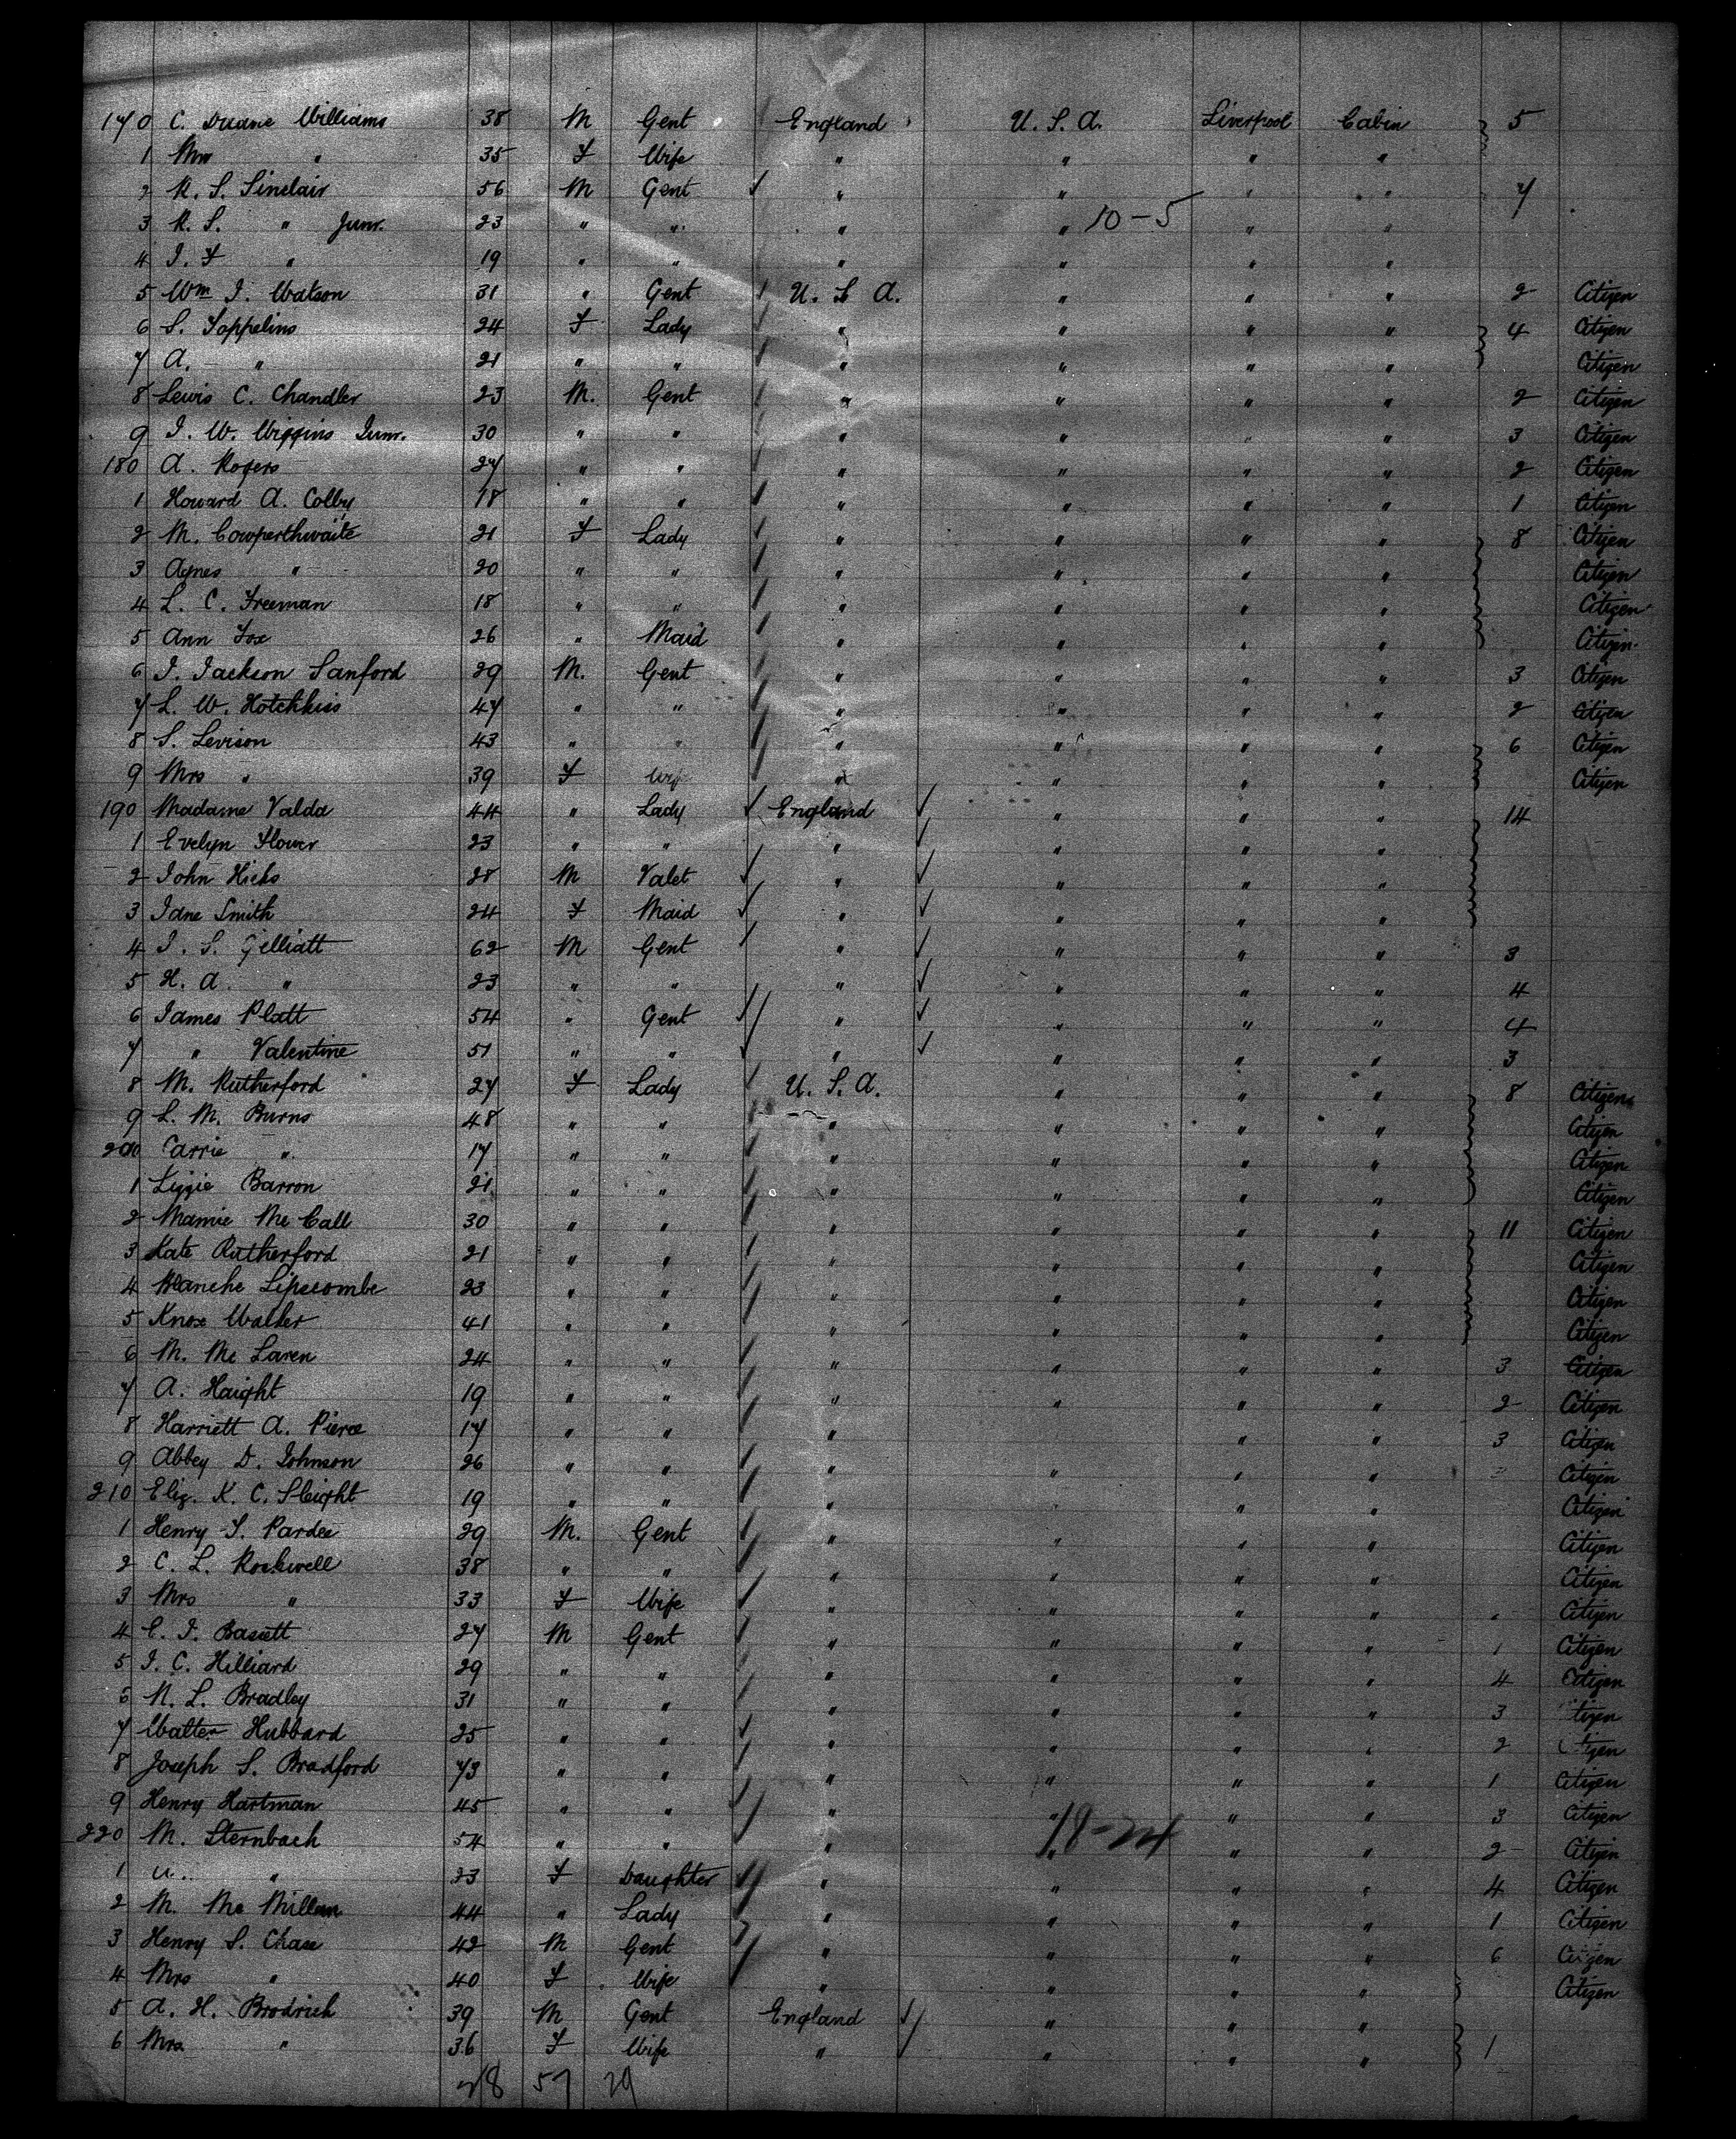 170 C. Duane Williams 38 M Gent England U. S. A. Liverpool Cabin 5
1 Mrs " 35 F Wife " " " "
2 R. S. Sinclair 56 M Gent " " " " 7
3 R. S. " Junr. 23 " " " " 10-5 " "
4 J. F " 19 " " " " " "
5 Wm J. Watson 31 " Gent U. S A. " " " 2 Citizen
6 S. 24 F Lady " " " " 4 Citizen
7 A. " 21 " " " " " " Citizen
8 Lewis C. Chandler 23 M. Gent " " " " 2 Citizen
9 J. W. Wiggins Junr. 30 " " " " " " 3 Citizen
180 A. Rogers 27 " " " " " " 2 Citizen
1 Howard A. Colby 18 " " " " " " 1 Citizen
2 M. Cowperthwaite 21 F Lady " " " " 8 Citizen
3 Agnes " 20 " " " " " " Citizen
4 L. C. Freeman 18 " " " " " " Citizen
5 Ann Fox 26 " Maid " " " " Citizen
6 J. Jackson Sanford 29 M. Gent " " " " 3 Citizen
7 L. W. Hotchkiss 47 " " " " " " 2 Citizen
8 S. Levison 43 " " " " " " 6 Citizen
9 Mrs " 39 F Wife " " " " Citizen
190 Madame Valda 44 " Lady England " " " 14
1 Evelyn Flower 23 " " " " " "
2 John Hicks 28 M Valet " " " "
3 Jane Smith 24 F Maid " " " "
4 J. S. Gelliatt 62 M Gent " " " " 3
5 H. A. " 23 " " " " " " 4
6 James Platt 54 " Gent " " " " 4
7 " Valentine 51 " " " " " " 3
8 M. Rutherford 27 F Lady U. S. A. " " " 8 Citizen
9 L. M. Burns 48 " " " " " " Citizen
200 Carrie " 17 " " " " " " Citizen
1 Lizzie Barron 21 " " " " " " Citizen
2 Mamie Mc Call 30 " " " " " " 11 Citizen
3 Kate Rutherford 21 " " " " " " Citizen
4 Blanche Lipscombe 23 " " " " " " Citizen
5 Knox Walker 41 " " " " " " Citizen
6 M. Mc Laren 24 " " " " " " 3 Citizen
7 A. Haight 19 " " " " " " 2 Citizen
8 Harriett A. Pierce 17 " " " " " " 3 Citizen
9 Abbey D. Johnson 26 " " " " " " Citizen
210 Eliz. K. C. Sleight 19 " " " " " " Citizen
1 Henry S. Pardee 29 M. Gent " " " " Citizen
2 C. L. Rockwell 38 " " " " " " Citizen
3 Mrs " 33 F Wife " " " " Citizen
4 C. J. Bassett 27 M Gent " " " " 1 Citizen
5 J. C. Hilliard 29 " " " " " " 4 Citizen
6 N. L. Bradley 31 " " " " " " 3 Citizen
7 Walter Hubbard 25 " " " " " " 2 Citizen
8 Joseph S. Bradford 73 " " " " " " 1 Citizen
9 Henry Hartman 45 " " " " " " 3 Citizen
220 M. Sternbach 54 " " " " 18-24 " " 2 Citizen
1 " 23 F Daughter " " " " 4 Citizen
2 M. Mc Millan 44 " Lady " " " " 1 Citizen
3 Henry S. Chase 42 M Gent " " " " 6 Citizen
4 Mrs " 40 F Wife " " " " Citizen
5 A. H. Brodrick 39 M Gent England " " "
6 Mrs " 36 F Wife " " " " 1
28 57 29